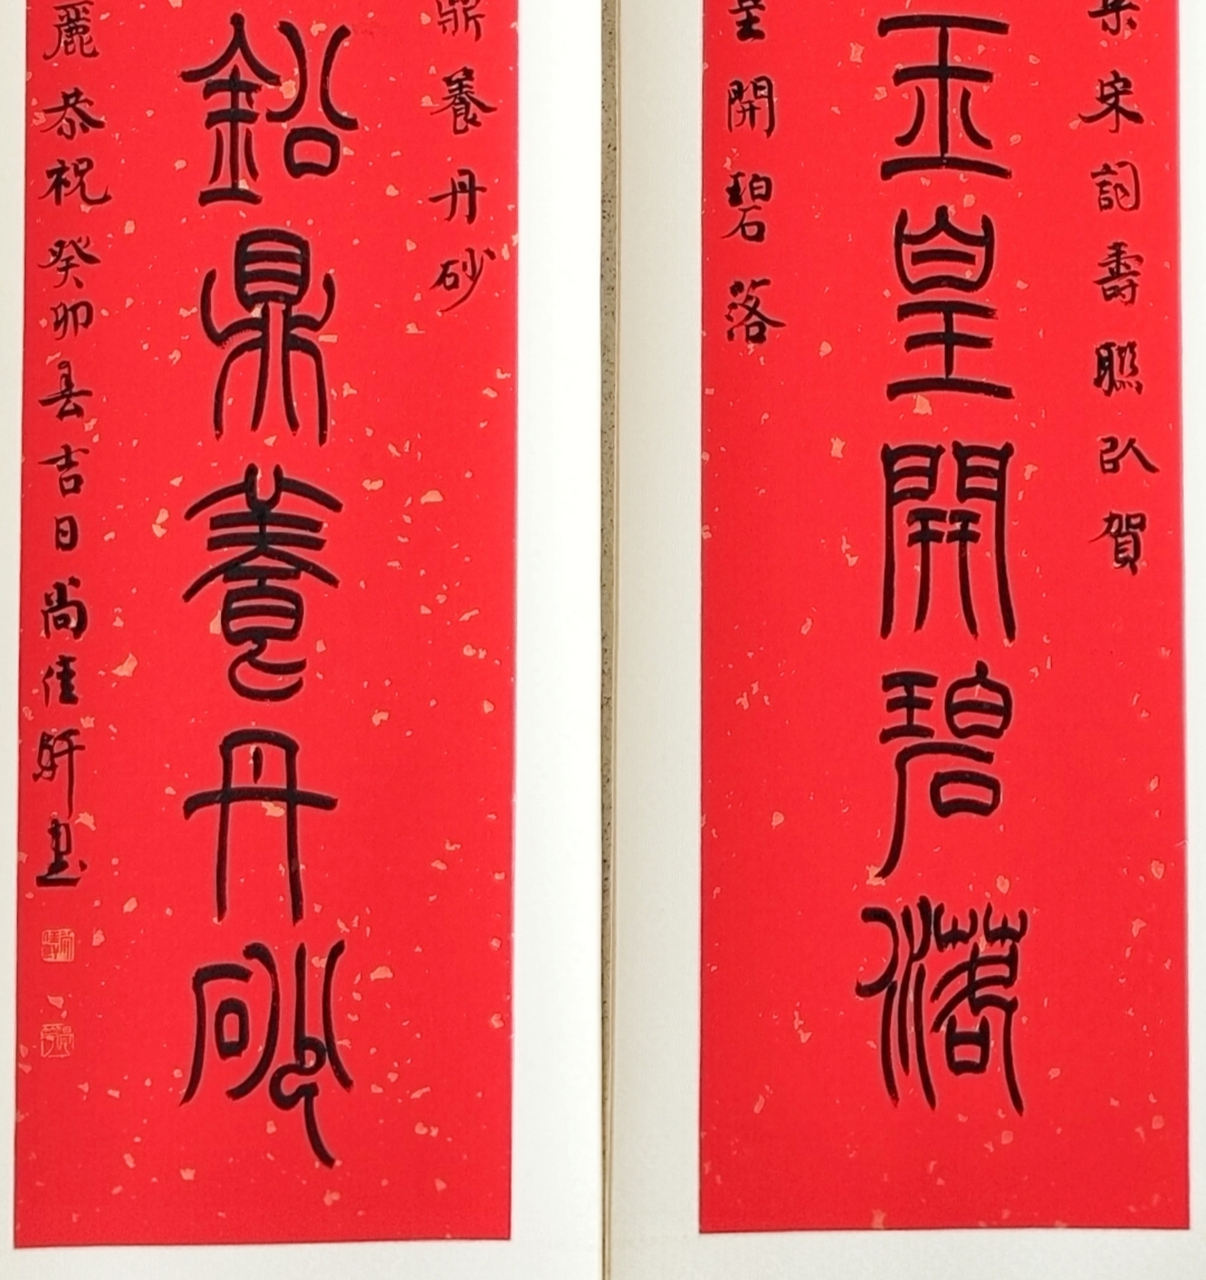 集宋詞壽聯以賀
玉皇開碧落
皇開碧落
鼎養丹砂
鉛鼎養丹砂
麗恭祝癸卯春吉日尚佳軒書